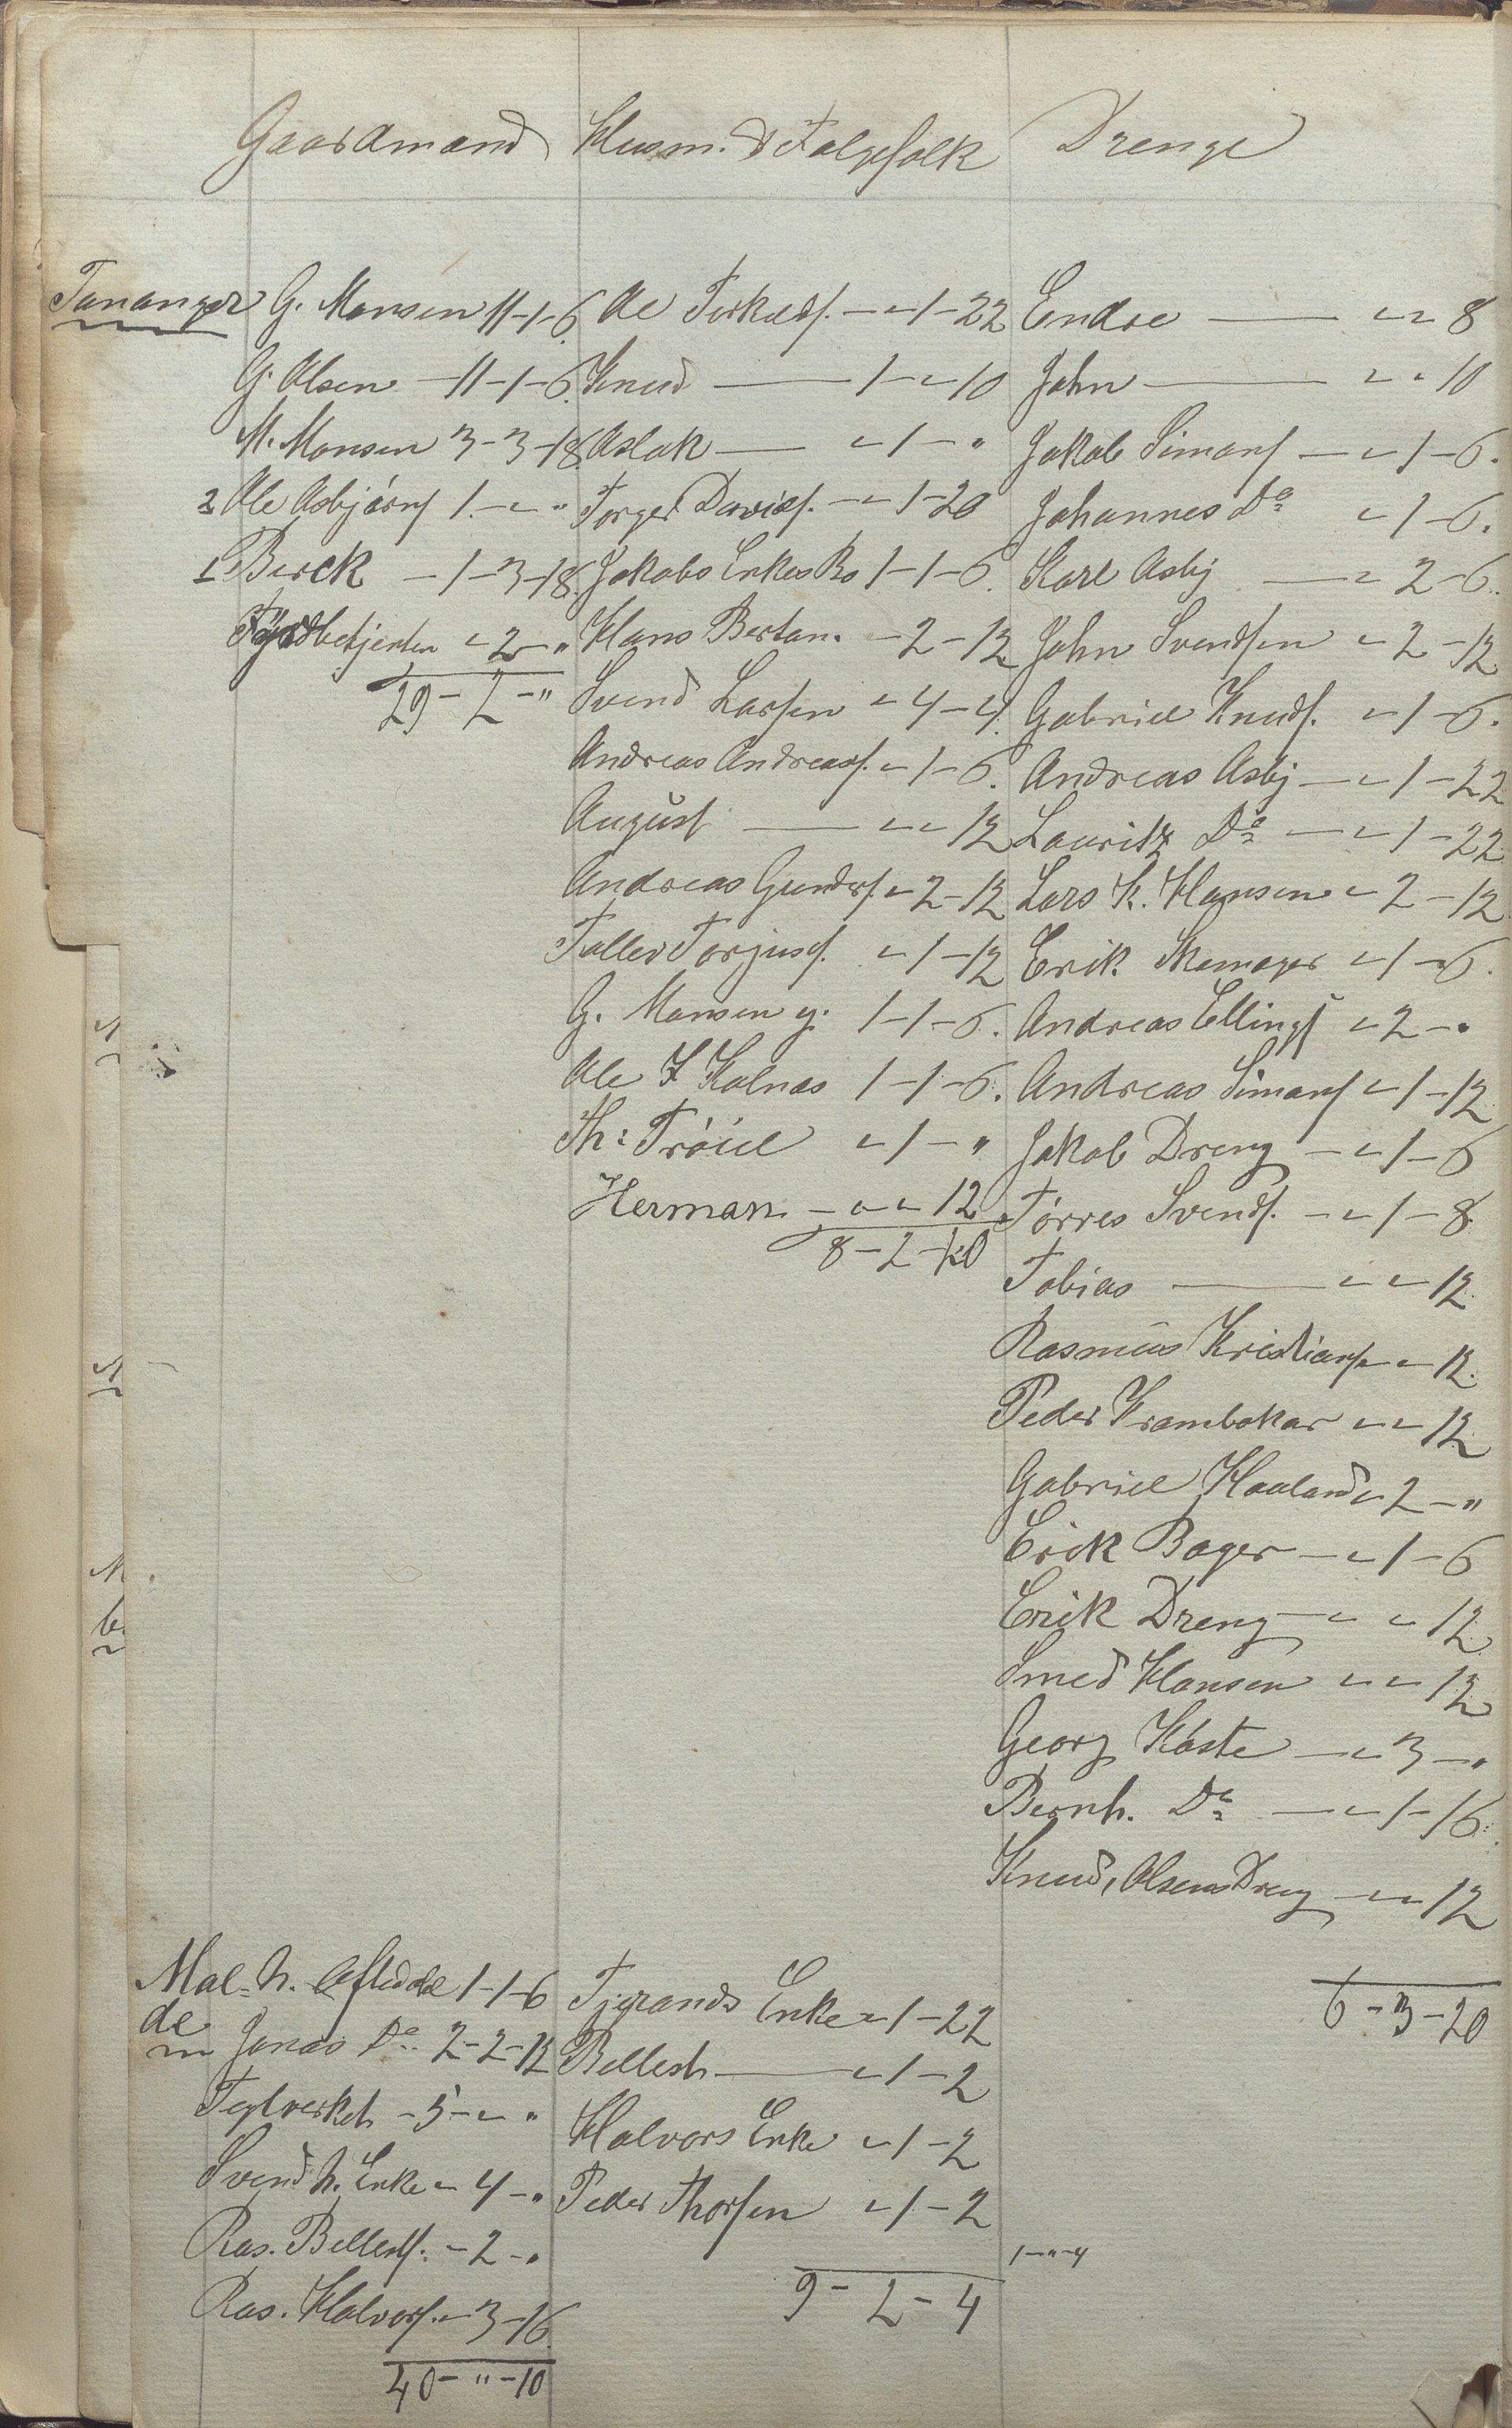 Gaardmænd Husm. & Følgefolk Drenge
Tananger G. Monsen 11-1-6.
G. Olsen - 11-1-6.
M. Monsen 3-3-18
2 Ole Asbjörns 1 - " - "
1 Berck - 1-3-18.
Fyrbetjenten " 2 - "
29 - 2 - "
Ole Torkelds. - " 1-22
Knud - 1 - " 10
Aslak - " 1 - "
Torger Davids. - " 1-20
Jakobs Enkes Bo 1-1-6.
Hans Bertan. - 2 - 12
Svend Larsen " 4-4.
Andreas Andreass. " 1-6.
August - " " 12
Andreas Gunders. " 2-12
Toller Torjuss. " 1-12
G. Monsen y. 1-1-6.
Ole Kolnæs 1-1-6.
Th: Tröiel " 1 - "
Herman - " " 12
8 - 2 - 20
Endre - " " 8
John - " " 10
Jakob Simons - " 1-6.
Johannes Do " 1-6.
Karl Asbj - " 2-6.
John Svendsen " 2-12
Gabriel Knuds. " 1-6.
Andreas Asbj - " 1-22
Lauritz Do - " 1-22
Lars K. Hansen " 2-12
Erik Skomager " 1-6.
Andreas Ellings " 2 - "
Andreas Simons " 1-12
Jakob Dreng - " 1-6
Törres Svends. - " 1-8
Tobias - " " 12
Rasmus Kristians " " 12.
Peder Krambokar " " 12
Gabriel Haaland " 2 - "
Erik Bager - " 1-6
Erik Dreng - " " 12
Smed Hansen " " 12
Georg Köste - " 3 - "
Bernh. Do - " 1-16.
Knud, Olsens Dreng - " " 12
6 - 3 - 20
Mel: h. 1-1-6
de Jonas Do 2-2-12
Teglverket - 5 - " "
Svend h. Enke " 4 - "
Ras. Bellests. - 2 - "
Ras. Halvors. " 3-16.
40 - " - 10
Tjerands Enke " 1-22
Bellest - " 1-2
Halvors Enke " 1-2
Peder Thorsen " 1-2
1 - " - 4
9 - 2 - 4